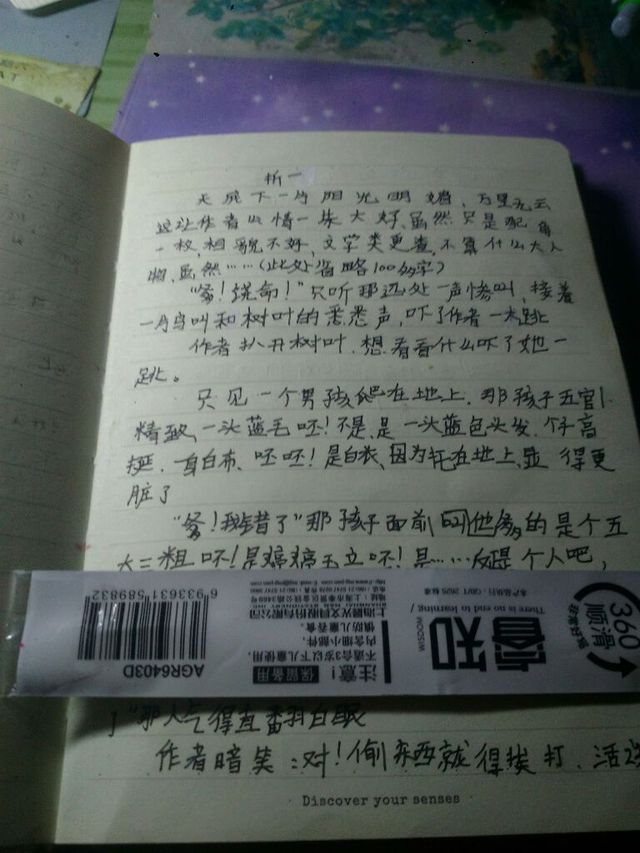 析一
天底下一片阳光明媚，万里无云
这让作者心情一抹大好，虽然只是配角
一枚，相貌不好，文学类更差，不算什么大人
物，虽然……（此处省略100多字）
“爹！饶命！”只听那远处一声惨叫，接着
一片鸟叫和树叶的悉悉声，吓了作者一大跳
作者扒开树叶，想看看什么吓了她一
跳。
只见一个男孩爬在地上，那孩子五官
精致，一头蓝毛呸！不是，是一头蓝色头发，个子高
挺，一身白布，呸呸！是白衣，因为在地上，显得更
脏了
“爹！我错了”那孩子面前叫他爹的是个五
大三粗呸！是婷婷玉立呸！是……反正是个人吧，
360
顺滑
非常好写
睿知
WISDOM
There is no end to learning
本产品执行：QB/T 2625 标准
保留备用
注意！
不适合3岁以下儿童使用，
内含细小部件，
慎防儿童吞食
上海晨光文具股份有限公司
AGR6403D
6 933631 589832
了”那人气得直翻白眼
作者暗笑：对！偷东西就得挨打，活该
Discover your senses